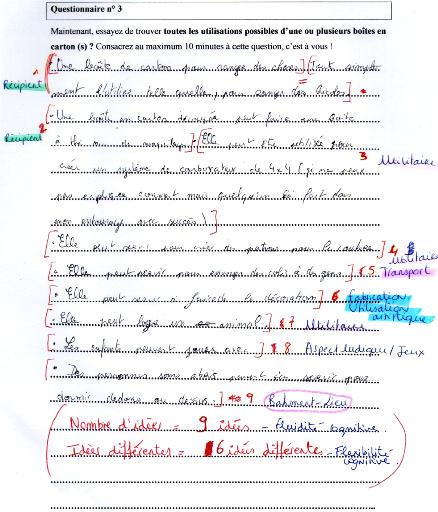 Questionnaire n° 3
Maintenant, essayez de trouver toutes les utilisations possibles d'une ou plusieurs boîtes en
carton (s) ? Consacrez au maximum 10 minutes à cette question, c'est à vous !
Une boîte de cartons pour ranger des choses
Récipient 1 ment l'utiliser telle quelle, pour ranger des
Une boîte en carton peut faire une
Récipient 2 Elle peut être utilisée pour
3 Utilitaire
créer un système de carburateur de 4x4 (je ne peux
pas expliquer comment mais quelqu'un l'a fait dans
mon entourage avec succès !)
Elle peut servir pour créer des patrons pour la couture 4 Utilitaire
Elle peut servir pour envoyer des colis à des gens 5 Transport
Elle peut servir à la décoration 6 Fabrication
Utilisation
artistique
Elle peut loger un animal 7 Utilitaire
Les enfants peuvent jouer avec 8 Aspect ludique / Jeux
Des personnes sans abris peuvent s'en servir pour
dormir dedans ou dessus 9 Bâtiment - Lieu
Nombre d'idées = 9 idées - Fluidité cognitive
Idées différentes = 6 idées différentes - Flexibilité
cognitive